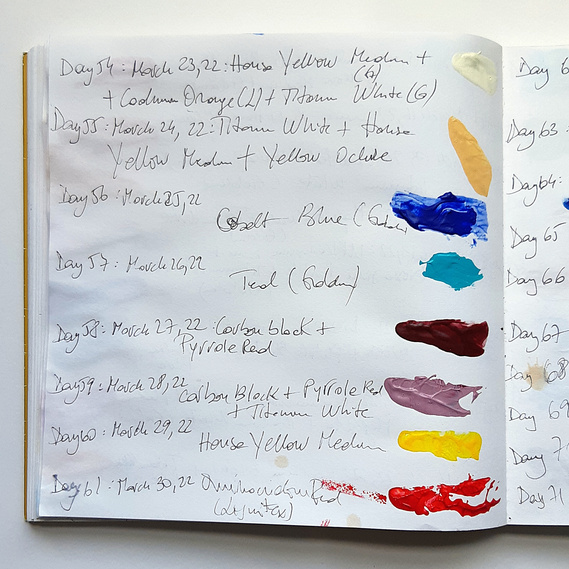 Day 54: March 23, 22: Hansa Yellow Medium +
(A)
+ Cadmium Orange (L) + Titanium White (G)
Day 55: March 24, 22: Titanium White + Hansa
Yellow Medium + Yellow Ochre
Day 56: March 25, 22
Cobalt Blue (Golden)
Day 57: March 26, 22
Teal (Golden)
Day 58: March 27, 22: Carbon black +
Pyrrole Red
Day 59: March 28, 22
Carbon Black + Pyrrole Red
+ Titanium White
Day 60: March 29, 22
Hansa Yellow Medium
Day 61: March 30, 22 Quinacridone Red
Day 6
Day 63:
Day 64:
Day 65
Day 66
Day 67
Day 68
Day 69
Day 7
Day 71